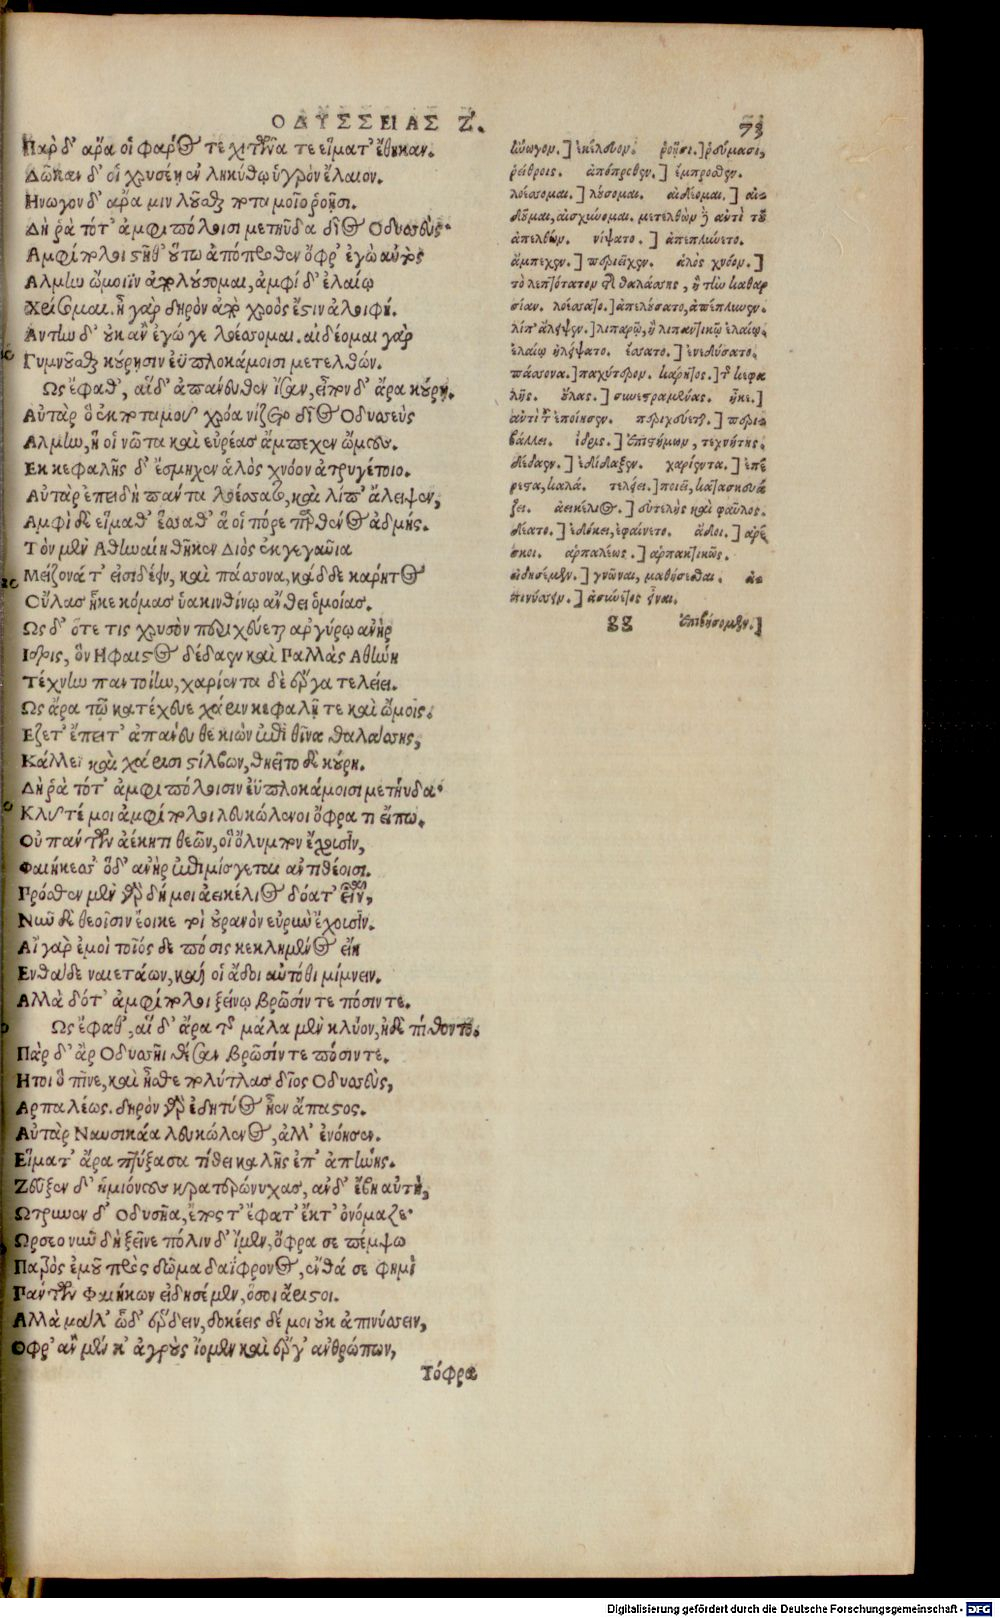 ΟΔΥΣΣΕΙΑΣ Ζ.
73
Παρ δ' ἄρα οἱ φαρός τε χιτῶνα τε εἵματ' ἔθηκαν.
Δῶκαν δ' οἱ χρυσέῃ ἐν ληκύθῳ ὑγρὸν ἔλαιον.
Ηνωγον δ' ἄρα μιν λοῦσθαι ποταμοῖο ῥοῇσι.
Δὴ ῥὰ τότ' ἀμφιπόλοισι μετηύδα δῖος Οδυσσεύς.
Αμφίπολοι στῆθ' οὕτω ἀπόπροθεν ὄφρ' ἐγὼ αὐτὸς
Αλμίω ὤμοιϊν ἀπολούσομαι, ἀμφὶ δ' ἐλαίῳ
Χρίσομαι. ἦ γὰρ δηρὸν ἀπὸ χροός ἐστιν ἀλοιφή.
Αντίω δ' οὐκ ἂν ἐγώ γε λοέσσομαι. αἰδέομαι γὰρ
Γυμνοῦσθαι κούρῃσιν ἐϋπλοκάμοισι μετελθών.
Ως ἔφαθ', αἱ δ' ἀπάνευθεν ἴσαν, εἶπον δ' ἄρα κούρῃ.
Αὐτὰρ ὁ ἐκ ποταμοῦ χρόα νίζετο δῖος Οδυσσεὺς
Αλμίω, ἥ οἱ νῶτα καὶ εὐρέας ἄμπεχεν ὤμους.
Εκ κεφαλῆς δ' ἔσμηχεν ἁλὸς χνόον ἀτρυγέτοιο.
Αὐτὰρ ἐπειδὴ πάντα λοέσσατο, καὶ λίπ' ἄλειψεν,
Αμφὶ δὲ εἵμαθ' ἕσσαθ' ἅ οἱ πόρε παρθένος ἀδμής.
Τὸν μὲν Αθηναίη θῆκεν Διὸς ἐκγεγαῶια
Μείζονά τ' εἰσιδέειν, καὶ πάσσονα, κάδδε κάρητος
Οὔλας ἧκε κόμας ὑακινθίνῳ ἄνθει ὁμοίας.
Ως δ' ὅτε τις χρυσὸν περιχεύεται ἀργύρῳ ἀνὴρ
Ιδρις, ὃν Ηφαιστος δέδαεν καὶ Παλλὰς Αθήνη
Τέχνην παντοίην, χαρίεντα δὲ ἔργα τελείει.
Ως ἄρα τῷ κατέχευε χάριν κεφαλῇ τε καὶ ὤμοις.
Εζετ' ἔπειτ' ἀπάνευθε κιὼν ἐπὶ θῖνα θαλάσσης,
Κάλλεϊ καὶ χάρισι στίλβων, θηεῖτο δὲ κούρη.
Δὴ ῥὰ τότ' ἀμφιπόλοισιν ἐϋπλοκάμοισι μετηύδα·
Κλῦτέ μοι ἀμφίπολοι λευκώλενοι ὄφρα τι εἴπω.
Οὐ πάντων ἀέκητι θεῶν, οἳ ὄλυμπον ἔχουσιν,
Φαιήκεσσ' ὅδ' ἀνὴρ ἐπιμίσγεται ἀντιθέοισι.
Πρόσθεν μὲν γὰρ δή μοι ἀεικέλιος δόατ' εἶναι,
Νῦν δὲ θεοῖσιν ἔοικε τοὶ οὐρανὸν εὐρὺν ἔχουσιν.
Αἲ γὰρ ἐμοὶ τοιός δε πόσις κεκλημένος εἴη
Ενθάδε ναιετάων, καί οἱ ἅδοι αὐτόθι μίμνειν.
Αλλὰ δότ' ἀμφίπολοι ξείνῳ βρῶσίν τε πόσιν τε.
Ως ἔφαθ', αἱ δ' ἄρα τοῦ μάλα μὲν κλύον, ἠδὲ πίθοντο.
Πὰρ δ' ἂρ Οδυσσῆι θέσαν βρῶσίν τε πόσιν τε.
Ητοι ὁ πῖνε, καὶ ἦσθε πολύτλας δῖος Οδυσσεὺς,
Αρπαλέως. δηρὸν γὰρ ἐδητύος ἦεν ἄπαστος.
Αὐτὰρ Ναυσικάα λευκώλενος, ἀλλ' ἐνόησεν.
Εἵματ' ἄρα πτύξασα τίθει καλῆς ἐπ' ἀπήνης.
Ζεῦξεν δ' ἡμιόνους κρατερώνυχας, ἀνδ' ἔβη αὐτή,
Ωτρυνεν δ' Οδυσῆα, ἔπος τ' ἔφατ' ἔκτ' ὀνόμαζε·
Ωρσεο νῦν δὴ ξεῖνε πόλιν δ' ἴμεν, ὄφρα σε πέμψω
Πατρὸς ἐμοῦ πρὸς δῶμα δαΐφρονος, ἔνθά σε φημὶ
Πάντων Φαιήκων εἰδησέμεν, ὅσοι ἄριστοι.
Αλλὰ μάλ' ὧδ' ἔρδειν, δοκέεις δέ μοι οὐκ ἀπινύσσειν,
Οφρ' ἂν μέν κ' ἀγροὺς ἴομεν καὶ ἔργ' ἀνθρώπων,
Τόφρα
ἠνωγον.] ἐκέλευον. ῥοῇσι.] ῥεύμασι,
ῥείθροις. ἀπόπροθεν.] ἔμπροσθεν.
λοέσσομαι.] λούσομαι. αἰδέομαι.] αἰ-
δοῦμαι, αἰσχύνομαι. μετελθὼν ἢ ἀντὶ τοῦ
ἀπελθών. νίψατο.] ἀπεπλύνετο.
ἄμπεχεν.] περιεῖχεν. ἁλὸς χνόον.]
τὸ λεπτότατον τῆς θαλάσσης, ἢ τὴν καθαρ
σίαν. λοέσσατο.] ἀπελούσατο, ἀπέπλυνεν.
λίπ' ἄλειψεν.] λιπαρῷ, ἢ λιπαντικῷ ἐλαίῳ.
ἐλαίῳ ἠλείψατο. ἕσσατο.] ἐνεδύσατο.
πάσσονα.] παχύτερον. κάρητος.] τῆς κεφα
λῆς. οὔλας.] συνεστραμμένας. ἧκε.]
ἀντὶ τοῦ ἐποίησεν. περιχεύεται.] περι-
βάλλει. ἴδρις.] ἐπιστήμων, τεχνίτης.
δέδαεν.] ἐδίδαξεν. χαρίεντα.] ἐπέ
ραστα, καλά. τελείει.] ποιεῖ, κατασκευά
ζει. ἀεικέλιος.] εὐτελὴς καὶ φαῦλος.
δέατο.] ἐδόκει, ἐφαίνετο. ἅδοι.] ἀρέ
σκοι. ἁρπαλέως.] ἁρπακτικῶς.
εἰδησέμεν.] γνῶναι, μαθήσεσθαι. ἀ-
πινύσσειν.] ἀσύνετος εἶναι.
gg ἐπιβήσομεν.]
Digitalisierung gefördert durch die Deutsche Forschungsgemeinschaft - DFG